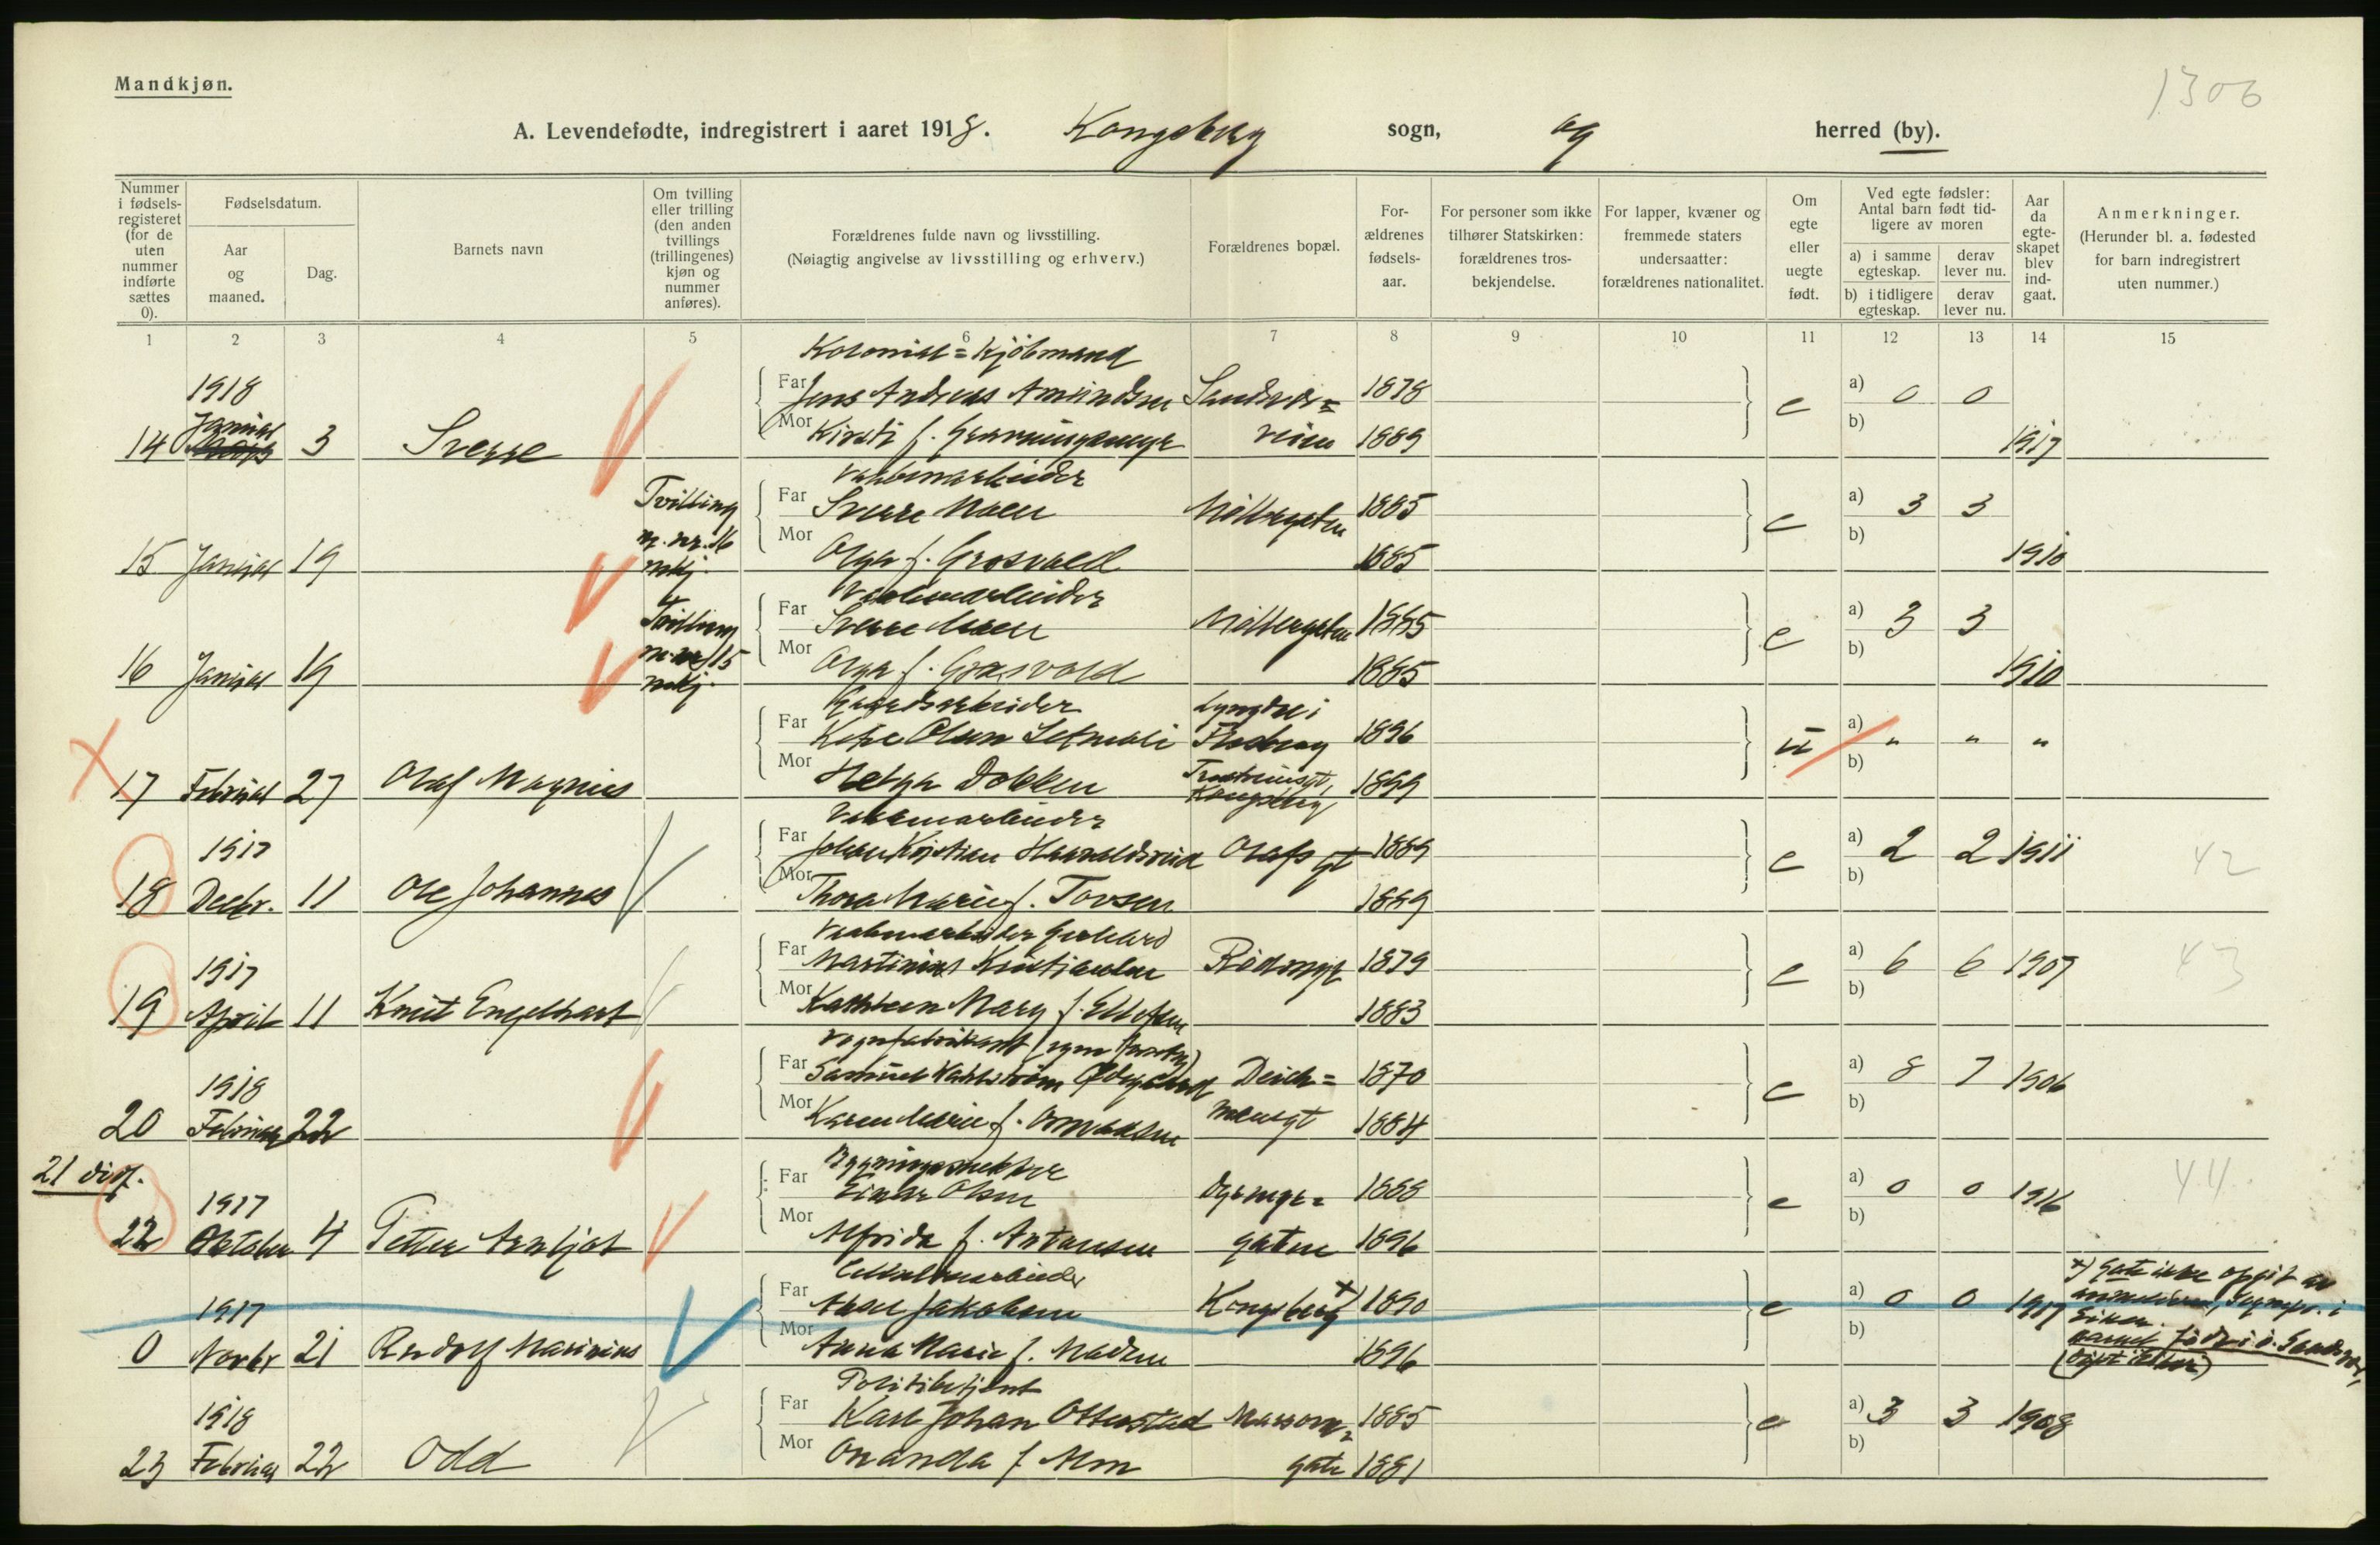 Mandkjøn.
1306
A. Levendefødte, indregistrert i aaret 1918. Kongsberg sogn, og herred (by).
Nummer i fødselsregisteret (for de uten nummer indførte sættes 0).
Fødselsdatum.
Aar og maaned.
Dag.
Barnets navn
Om tvilling eller trilling (den anden tvillings (trillingenes) kjøn og nummer anføres).
Forældrenes fulde navn og livsstilling.
(Nøiagtig angivelse av livsstilling og erhverv.)
Forældrenes bopæl.
Forældrenes fødselsaar.
For personer som ikke tilhører Statskirken: forældrenes trosbekjendelse.
For lapper, kvæner og fremmede staters undersaatter: forældrenes nationalitet.
Om egte eller uegte født.
Ved egte fødsler: Antal barn født tidligere av moren
a) i samme egteskap. derav lever nu.
b) i tidligere egteskap. derav lever nu.
Aar da egteskapet blev indgaat.
Anmerkninger.
(Herunder bl. a. fødested for barn indregistrert uten nummer.)
1 2 3 4 5 6 7 8 9 10 11 12 13 14 15
Kolonial=kjøbmand
1918 Far Jens Andreas Amundsen 1878 a) 0 0
14 Januar 3 Sverre Mor Kirsti f. 1889 e b) 1917
Vaabenarbeider
Tvilling Far Sverre Moen Møllergaten 1885 a) 3 3
15 Januar 19 m. nr. 16 mkj. Mor Olga f. Grosvold 1885 e b) 1910
Vaabenarbeider
Tvilling Far Sverre Moen Møllergaten 1885 a) 3 3
16 Januar 19 m. nr. 15 mkj. Mor Olga f. Grosvold 1885 e b) 1910
Gaardsarbeider Lyngdal i
Far Olsen Flesberg 1896 u a) " " "
17 Februar 27 Olaf Magnus Mor Helga Dokken Kongsberg 1899 b)
Vaabenarbeider
1917 Far Johan Kristian Haraldsrud Olafs gt 1889 a) 2 2 1911 42
18 Decbr. 11 Ole Johannes Mor Thora Marie f. Torsen 1889 e b)
Vaabenarbeider Gerhard
1917 Far Martinius Kristiansen 1879 a) 6 6 1907 43
19 April 11 Knut Engelhart Mor Kathleen Mary f. Ellefsen 1883 e b)
Vognfabrikant (egen
1918 Far Samuel Wahlstrøm Deich= 1870 a) 8 7 1906
20 Februar 22 Mor Karen Marie f. mansgt 1884 e b)
21 dipf.
Bygningssnekker
1917 Far Einar Olsen Dyrmyr= 1888 a) 0 0 1916 44
22 Oktober 4 Petter Arnljot Mor Alfrida f. Antonsen gaten 1896 e b)
1917 Far Jakobsen Kongsberg x) 1890 a) 0 0 1917 x) Gate ikke opgit av
0 Novbr 21 Rudolf Marinius Mor Anna Marie f. Madsen 1896 e b)
Politibetjent
1918 Far Karl Johan Ottestad 1885 a) 3 3 1908
23 Februar 22 Odd Mor Onanda f. Alm gate 1881 e b)